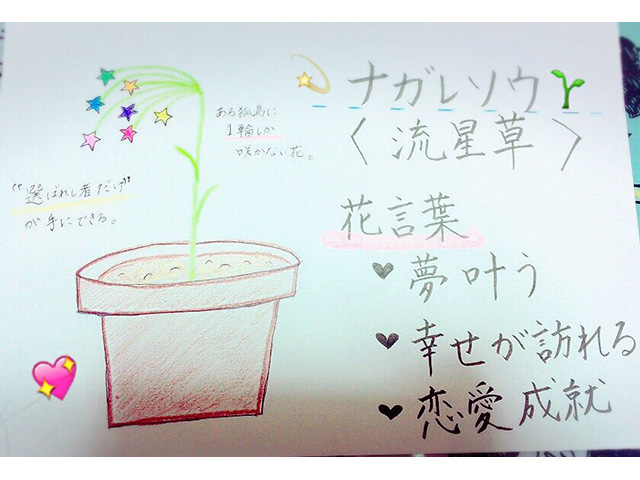 ナガレソウ
〈流星草〉
ある孤島に
1輪しか
咲かない花。
"選ばれし者だけ"
が手にできる。
花言葉
♥夢叶う
♥幸せが訪れる
♥恋愛成就